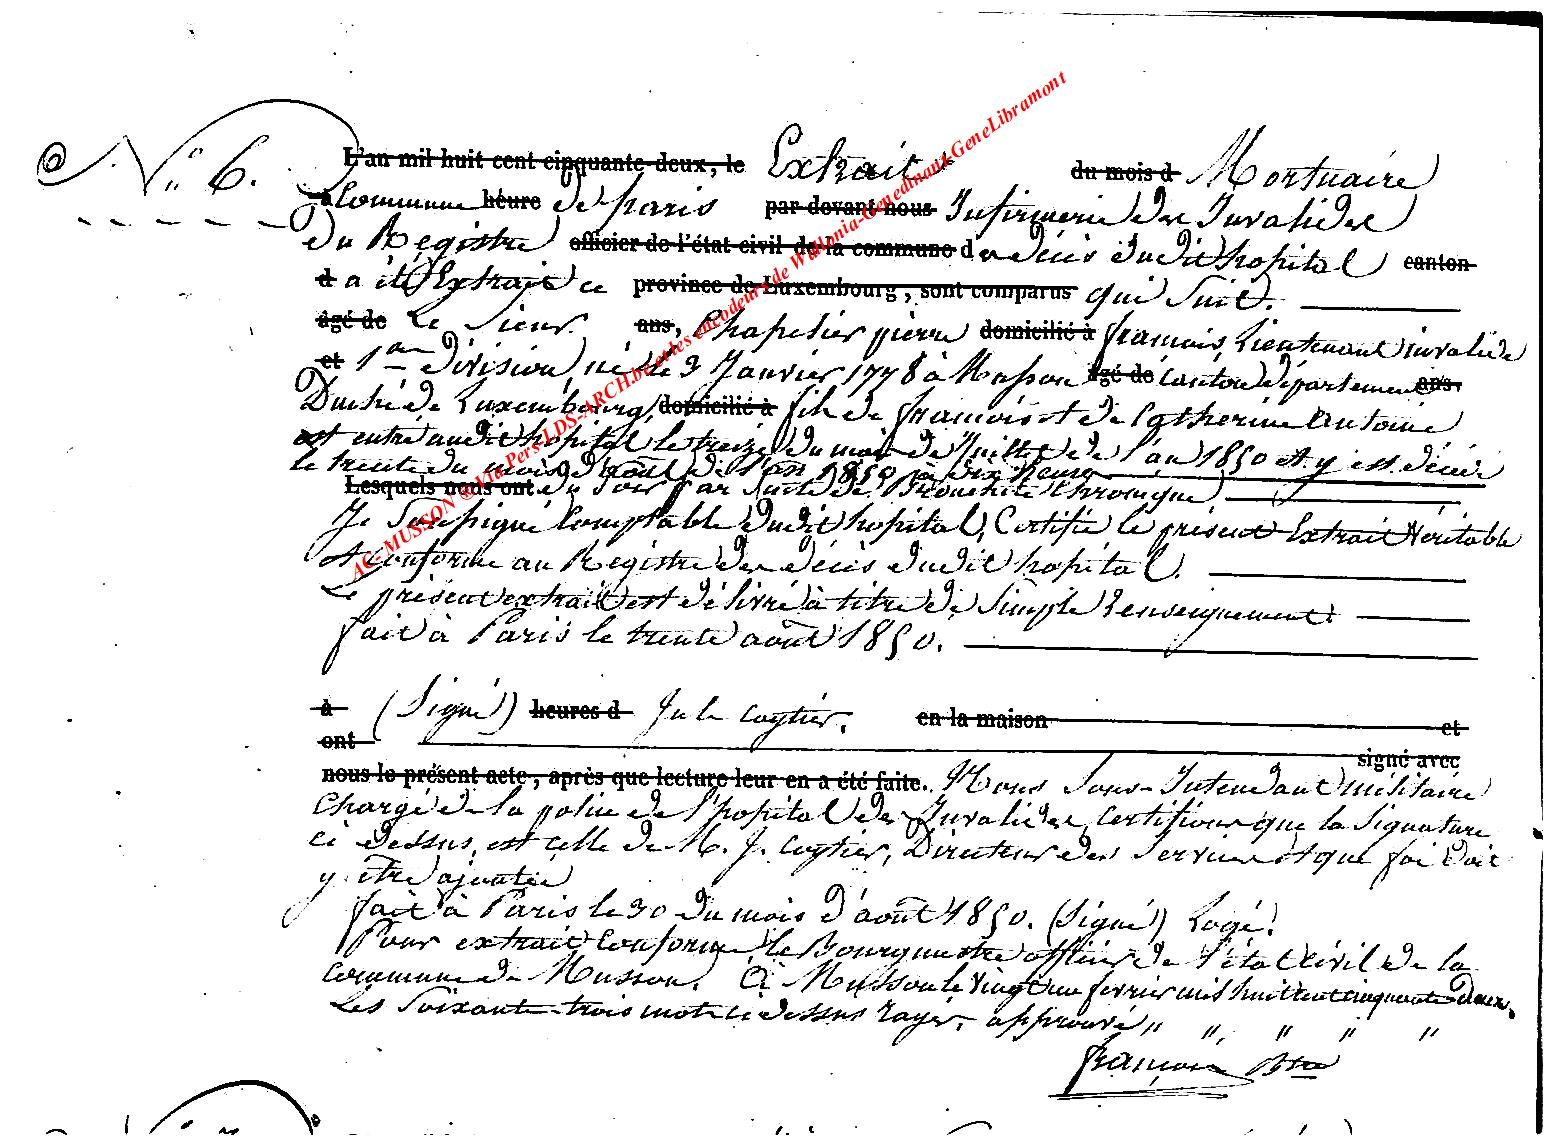 N° 6.
L'an mil huit cent cinquante-deux, le Extrait du mois d Mortuaire
à Commune heure de paris par-devant nous Infirmerie des Invalides
du Registre officier de l'état civil de la commune des décès dudit hopital canton
d a été Extrait ce province de Luxembourg, sont comparus qui Suit.
âgé de Le Sieur ans, Chapelier pierre domicilié à francois Lieutenant invalide
et 1ere division, né le 3 Janvier 1778 à Musson âgé de Canton département ans.
Duché de Luxembourg, domicilié à fils de francois et de Catherine Antoine
est entré audit hopital le treize du mois de Juillet de l'an 1850 et y est décédé
le trente du mois d'août de l'an 1850 à dix heures
Lesquels nous ont du Soir par Suite de Bronchite chronique
Je Soussigné Comptable dudit hopital, Certifie le présent Extrait Véritable
et conforme au Registre des décès dudit hopital.
Le présent extrait est délivré à titre de Simple Renseignement.
fait à Paris le trente août 1850.
à (Signé) heures d Jule Coytier. en la maison et
ont signé avec
nous le présent acte, après que lecture leur en a été faite. Nous Sous-Intendant militaire
Chargé de la police de l'hopital des Invalides, Certifions que la Signature
ci dessus, est celle de M. J. Coytier, Directeur des Services et que foi doit
y être ajoutée
fait à Paris le 30 du mois d'août 1850. (Signé) Logé!
Pour extrait Conforme, le Bourgmestre officier de l'état civil de la
commune de Musson. à Musson le vingt un fevrier mil huit cent cinquante-deux.
Les Soixante-trois mots ci dessus rayés, approuvé " " " " "
françois Bre
AC-MUSSON © Via Pers-LDS-ARCH.be et les encodeurs de Wallonia-Genedinant-GeneLibramont